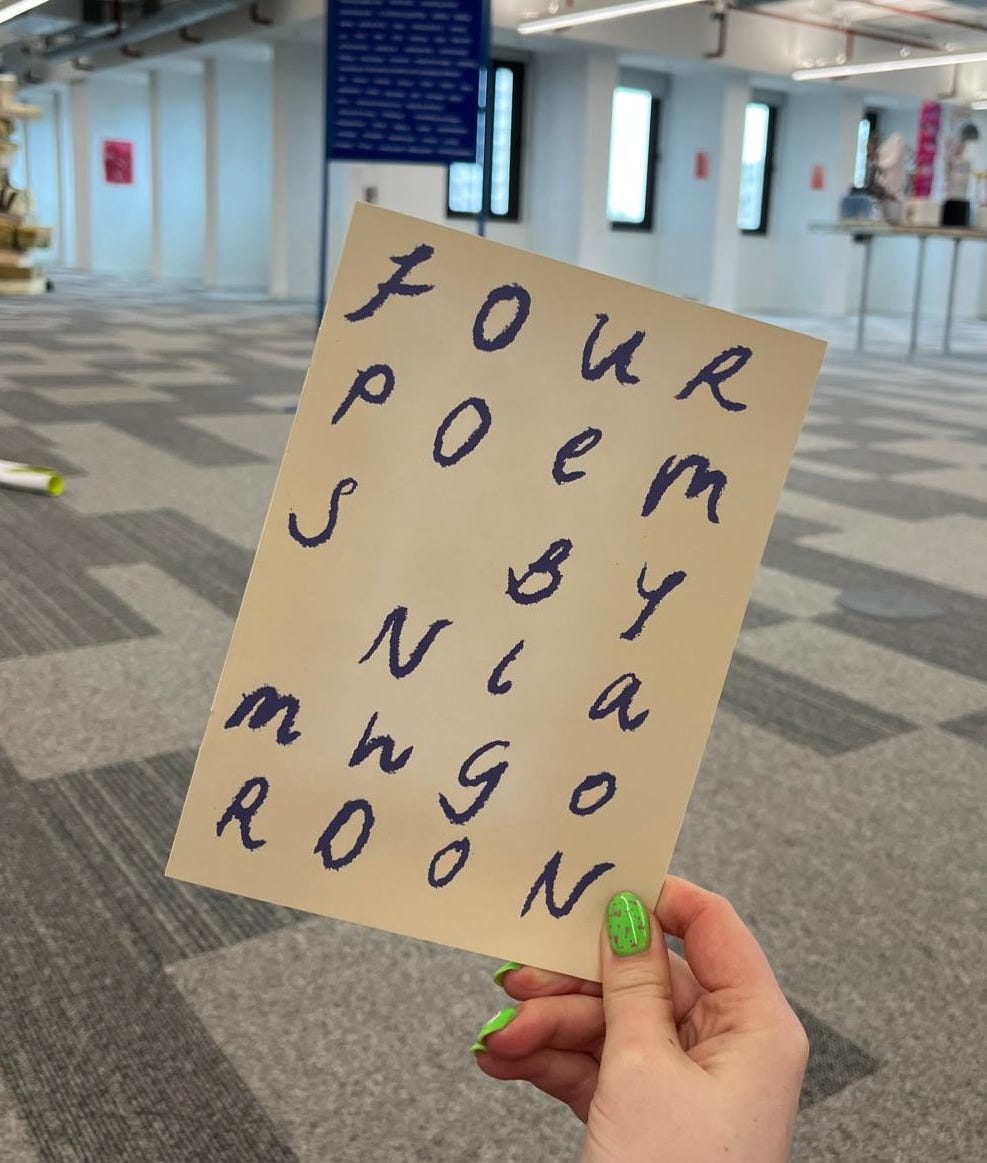 FOUR
POem
S BY
Nia
mhgo
ROON